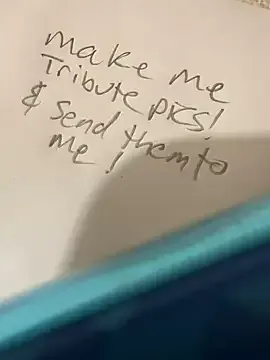 make me
Tribute pics!
& Send them to
me !